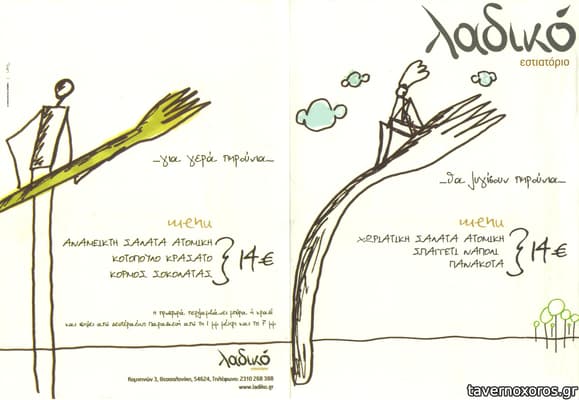 λαδικό
εστιατόριο
...για γερά πηρούνια...
menu
ΑΝΑΜΕΙΚΤΗ ΣΑΛΑΤΑ ΑΤΟΜΙΚΗ
ΚΟΤΟΠΟΥΛΟ ΚΡΑΣΑΤΟ
ΚΟΡΜΟΣ ΣΟΚΟΛΑΤΑΣ
14€
η προσφορά περιλαμβάνει μπύρα ή κρασί
και ισχύει από Δευτέρα έως Παρασκευή από τη 1 μμ μέχρι και τις 7 μμ
λαδικό
εστιατόριο
Κομνηνών 3, Θεσσαλονίκη, 54624, Τηλέφωνο: 2310 268 388
www.ladiko.gr
...θα λυγίσουν πηρούνια...
menu
ΧΩΡΙΑΤΙΚΗ ΣΑΛΑΤΑ ΑΤΟΜΙΚΗ
ΣΠΑΓΓΕΤΙ ΝΑΠΟΛΙ
ΠΑΝΑΚΟΤΑ
14€
tavernoxoros.gr